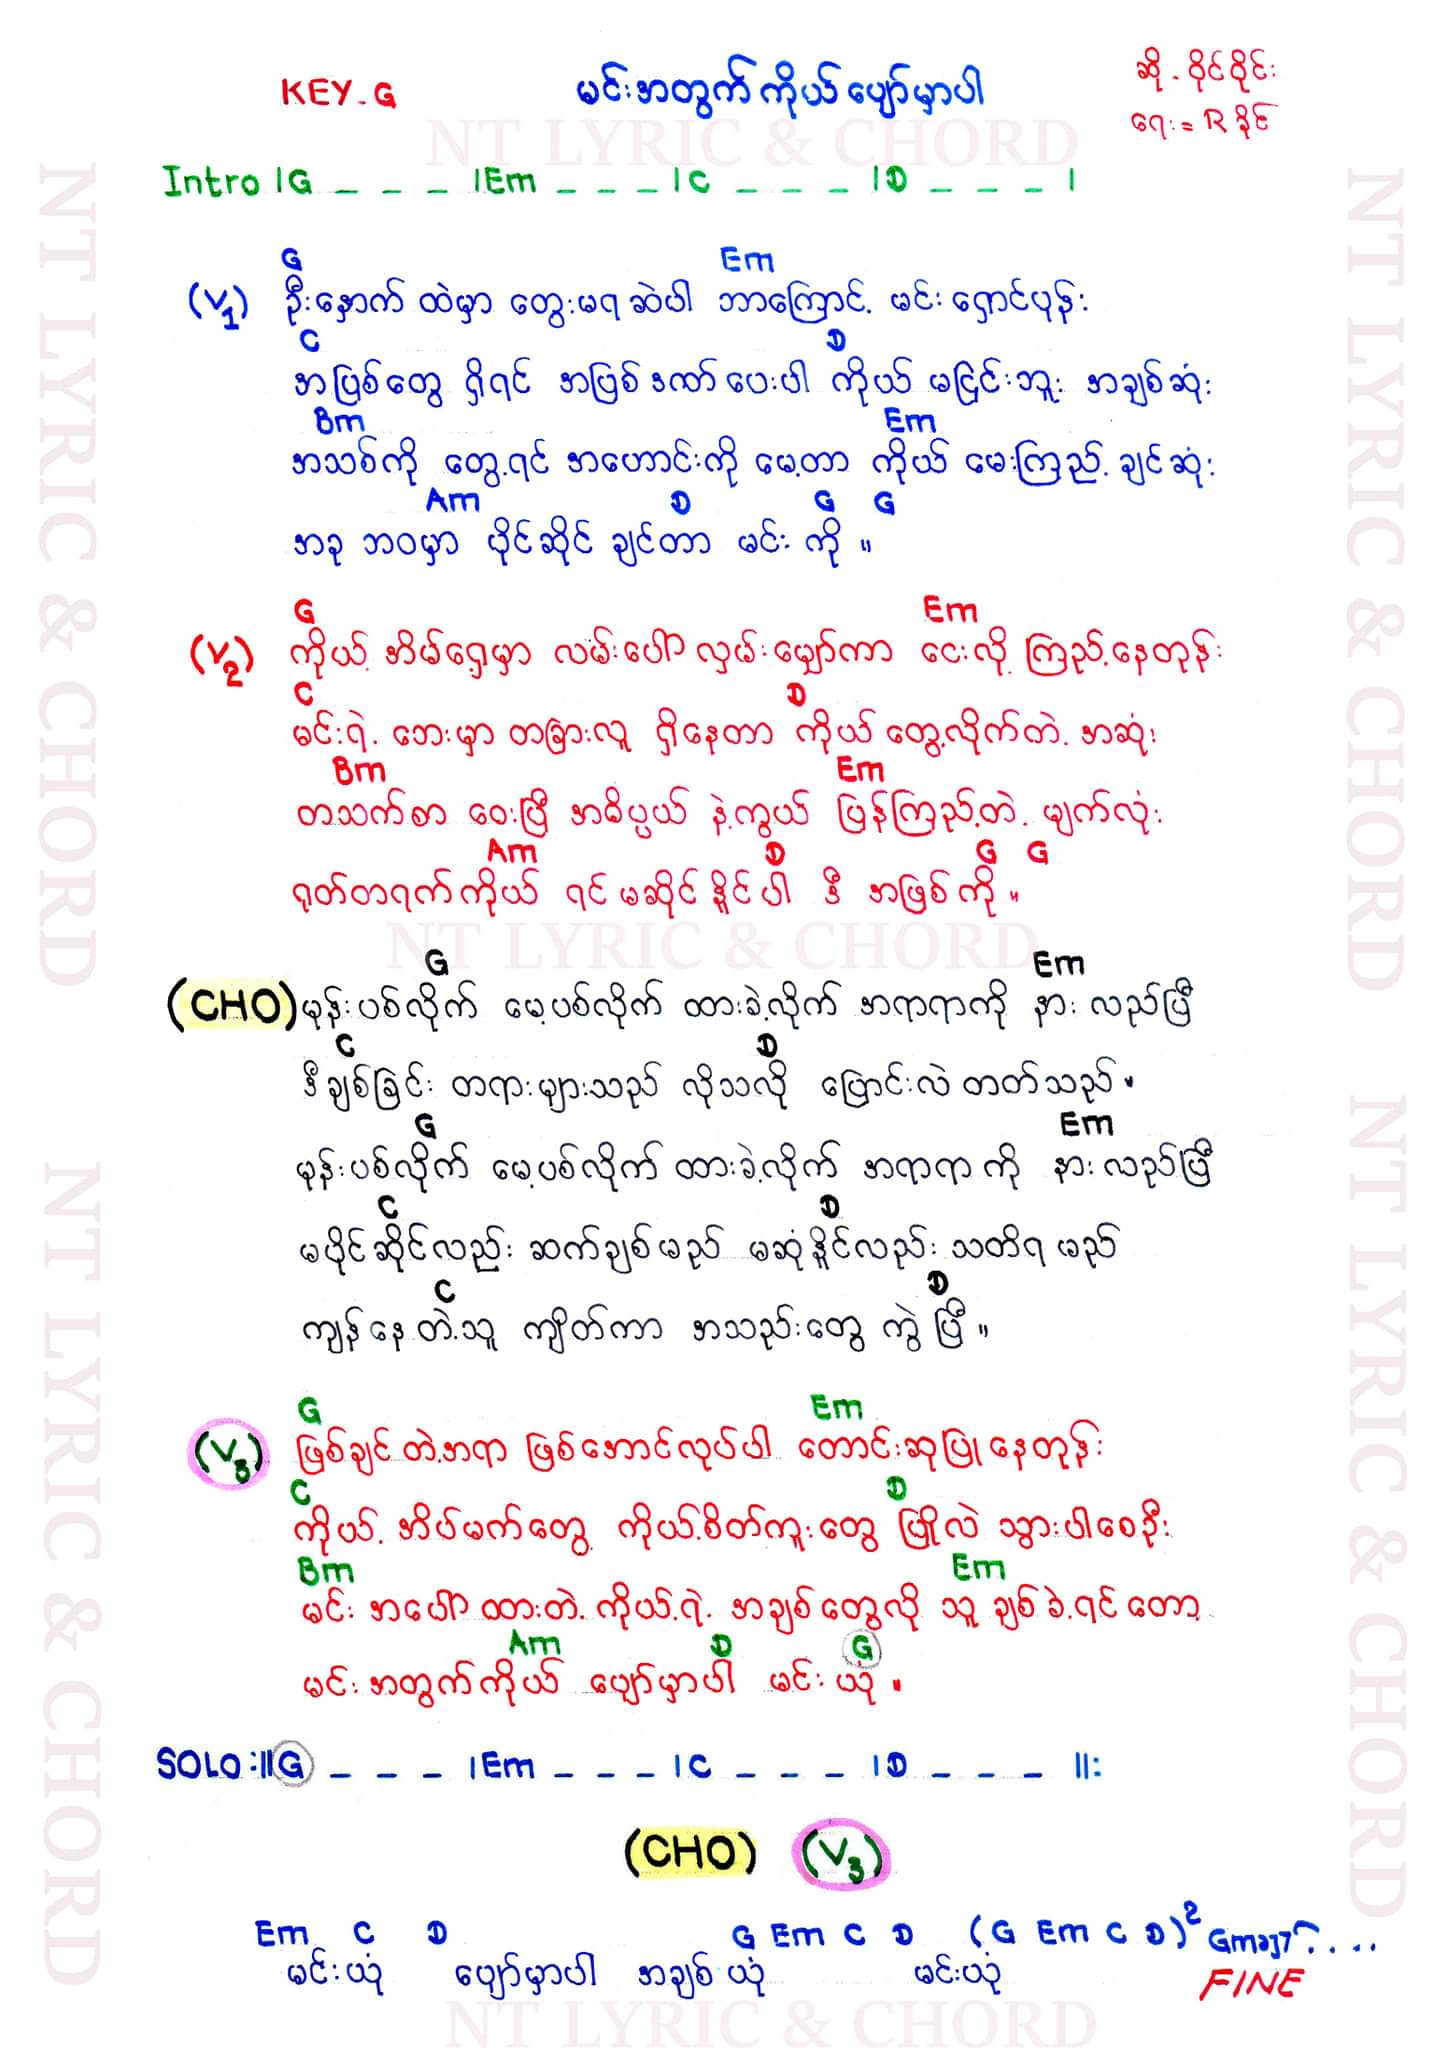 KEY - G
မင်းအတွက်ကိုယ်ပျော်မှာပါ
ဆို - ဝိုင်ဝိုင်း
ရေး = R ခိုင်
NT LYRIC & CHORD
Intro |G _ _ _ |Em _ _ _ |C _ _ _ |D _ _ _ |
G Em
(V1) ဦးနှောက် ထဲမှာ တွေးမရ ဆဲပါ ဘာကြောင့် မင်း ရှောင်ပုန်း
C D
အဖြစ်တွေ ရှိရင် အပြစ် ဒဏ် ပေးပါ ကိုယ် မငြင်းဘူး အချစ်ဆုံး
Bm Em
အသစ်ကို တွေ့ရင် အဟောင်းကို မေ့တာ ကိုယ် မေးကြည့် ချင်ဆုံး
Am D G G
အခု ဘဝမှာ ပိုင်ဆိုင် ချင်တာ မင်း ကို ။
G Em
(V2) ကိုယ့် အိမ်ရှေ့မှာ လမ်းပေါ် လှမ်းမျှော်ကာ ငေးလို့ ကြည့်နေတုန်း
C D
မင်းရဲ့ ဘေးမှာ တခြားလူ ရှိနေတာ ကိုယ် တွေ့လိုက်တဲ့ အဆုံး
Bm Em
တသက်စာ ဝေးပြီ အဓိပ္ပယ် နဲ့ကွယ် ပြန်ကြည့်တဲ့ မျက်လုံး
Am D G G
ရုတ်တရက်ကိုယ် ရင် မဆိုင် နိုင်ပါ ဒီ အဖြစ်ကို ။
NT LYRIC & CHORD
G Em
(CHO) မုန်းပစ်လိုက် မေ့ပစ်လိုက် ထားခဲ့လိုက် အရာရာကို နား လည်ပြီ
C D
ဒီချစ်ခြင်း တရားများသည် လိုသလို ပြောင်းလဲ တတ်သည် ။
G Em
မုန်းပစ်လိုက် မေ့ပစ်လိုက် ထားခဲ့လိုက် အရာရာ ကို နား လည်ပြီ
C D
မပိုင်ဆိုင်လည်း ဆက်ချစ်မည် မဆုံနိုင်လည်း သတိရ မည်
C D
ကျန်နေ တဲ့သူ ကျိတ်ကာ အသည်းတွေ ကွဲ ပြီ ။
G Em
(V3) ဖြစ်ချင် တဲ့အရာ ဖြစ်အောင်လုပ်ပါ တောင်းဆုပြု နေတုန်း
C D
ကိုယ့် အိပ်မက်တွေ ကိုယ့်စိတ်ကူးတွေ ပြိုလဲ သွားပါစေဦး
Bm Em
မင်း အပေါ် ထားတဲ့ ကိုယ့်ရဲ့ အချစ်တွေလို သူ ချစ်ခဲ့ရင် တော့
Am D G
မင်း အတွက်ကိုယ် ပျော်မှာပါ မင်း ယုံ ။
SOLO :||G _ _ _ |Em _ _ _ |C _ _ _ |D _ _ _ ||:
(CHO) (V3)
Em C D G Em C D (G Em C D)² Gmaj7 . . . .
မင်းယုံ ပျော်မှာပါ အချစ် ယုံ မင်းယုံ
FINE
NT LYRIC & CHORD
NT LYRIC & CHORD
NT LYRIC & CHORD
NT LYRIC & CHORD
NT LYRIC & CHORD